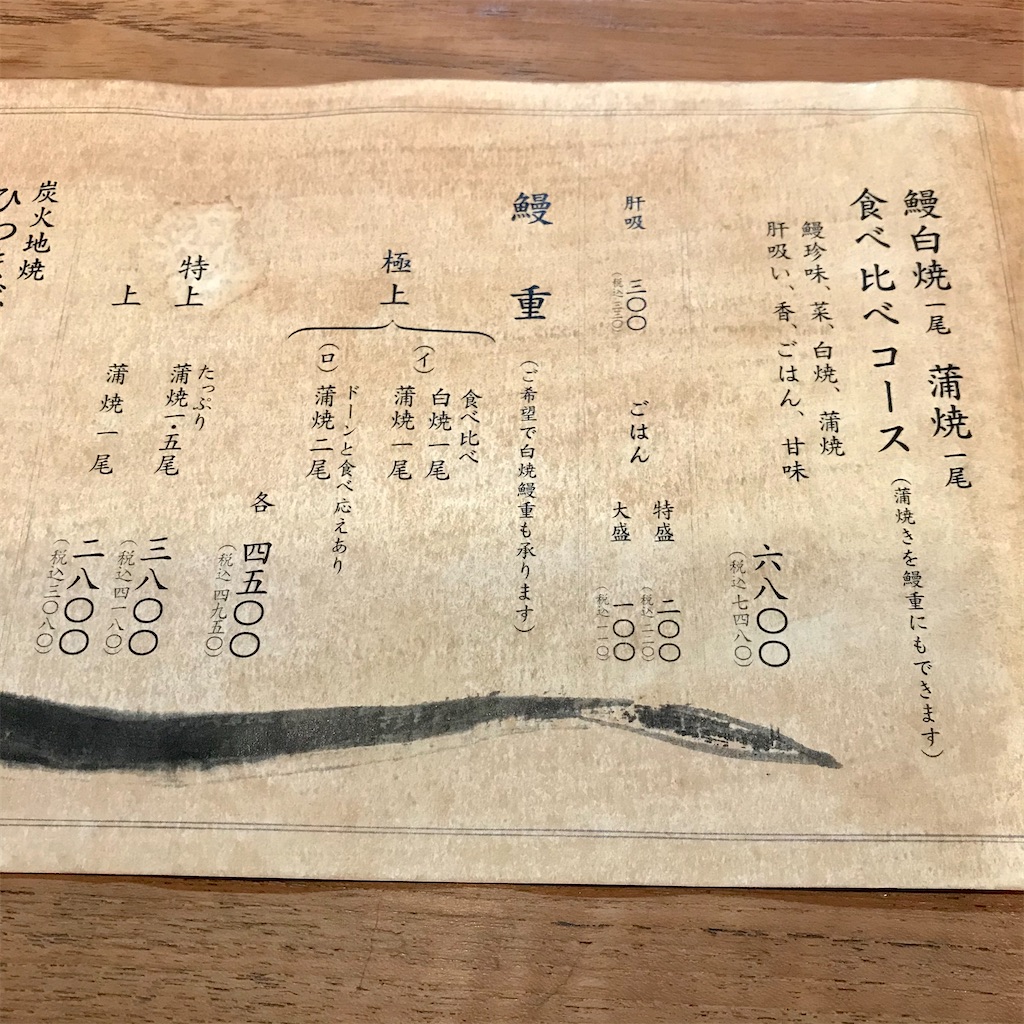 鰻白焼一尾 蒲焼一尾
食べ比べコース(蒲焼きを鰻重にもできます)
鰻珍味、菜、白焼、蒲焼
肝吸い、香、ごはん、甘味
六八〇〇
(税込七四八〇)
肝吸 三〇〇
(税込三三〇)
ごはん
特盛 二〇〇
(税込二二〇)
大盛 一〇〇
(税込一一〇)
鰻重(ご希望で白焼鰻重も承ります)
極上
(イ)
食べ比べ
白焼一尾
蒲焼一尾
(ロ)
ドーンと食べ応えあり
蒲焼二尾
各 四五〇〇
(税込四九五〇)
特上
たっぷり
蒲焼一・五尾
三八〇〇
(税込四一八〇)
上 蒲焼一尾
二八〇〇
(税込三〇八〇)
炭火地焼
ひつ